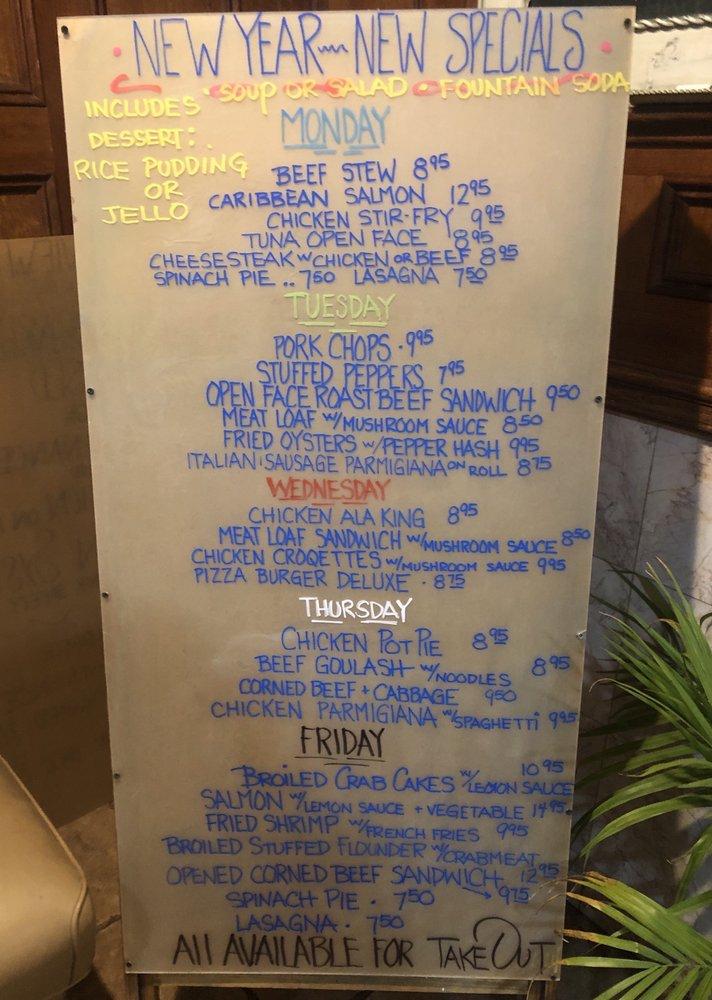 NEW YEAR~NEW SPECIALS
INCLUDES • SOUP OR SALAD • FOUNTAIN SODA
DESSERT:
RICE PUDDING
OR
JELLO
MONDAY
BEEF STEW 8.95
CARIBBEAN SALMON 12.95
CHICKEN STIR-FRY 9.95
TUNA OPEN FACE 8.95
CHEESESTEAK W CHICKEN OR BEEF 8.95
SPINACH PIE .. 7.50 LASAGNA 7.50
TUESDAY
PORK CHOPS . 9.95
STUFFED PEPPERS 7.95
OPEN FACE ROAST BEEF SANDWICH 9.50
MEAT LOAF W/MUSHROOM SAUCE 8.50
FRIED OYSTERS W/PEPPER HASH 9.95
ITALIAN SAUSAGE PARMIGIANA ON ROLL 8.75
WEDNESDAY
CHICKEN ALA KING 8.95
MEAT LOAF SANDWICH W/MUSHROOM SAUCE 8.50
CHICKEN CROQETTES W/MUSHROOM SAUCE 9.95
PIZZA BURGER DELUXE . 8.75
THURSDAY
CHICKEN POT PIE 8.95
BEEF GOULASH W/NOODLES 8.95
CORNED BEEF + CABBAGE 9.50
CHICKEN PARMIGIANA W/SPAGHETTI 9.95
FRIDAY
BROILED CRAB CAKES W/LEMON SAUCE 10.95
SALMON W/LEMON SAUCE + VEGETABLE 14.95
FRIED SHRIMP W/FRENCH FRIES 9.95
BROILED STUFFED FLOUNDER W/CRABMEAT 12.95
OPENED CORNED BEEF SANDWICH → 9.75
SPINACH PIE . 7.50
LASAGNA . 7.50
All AVAILABLE FOR TAKE OUT